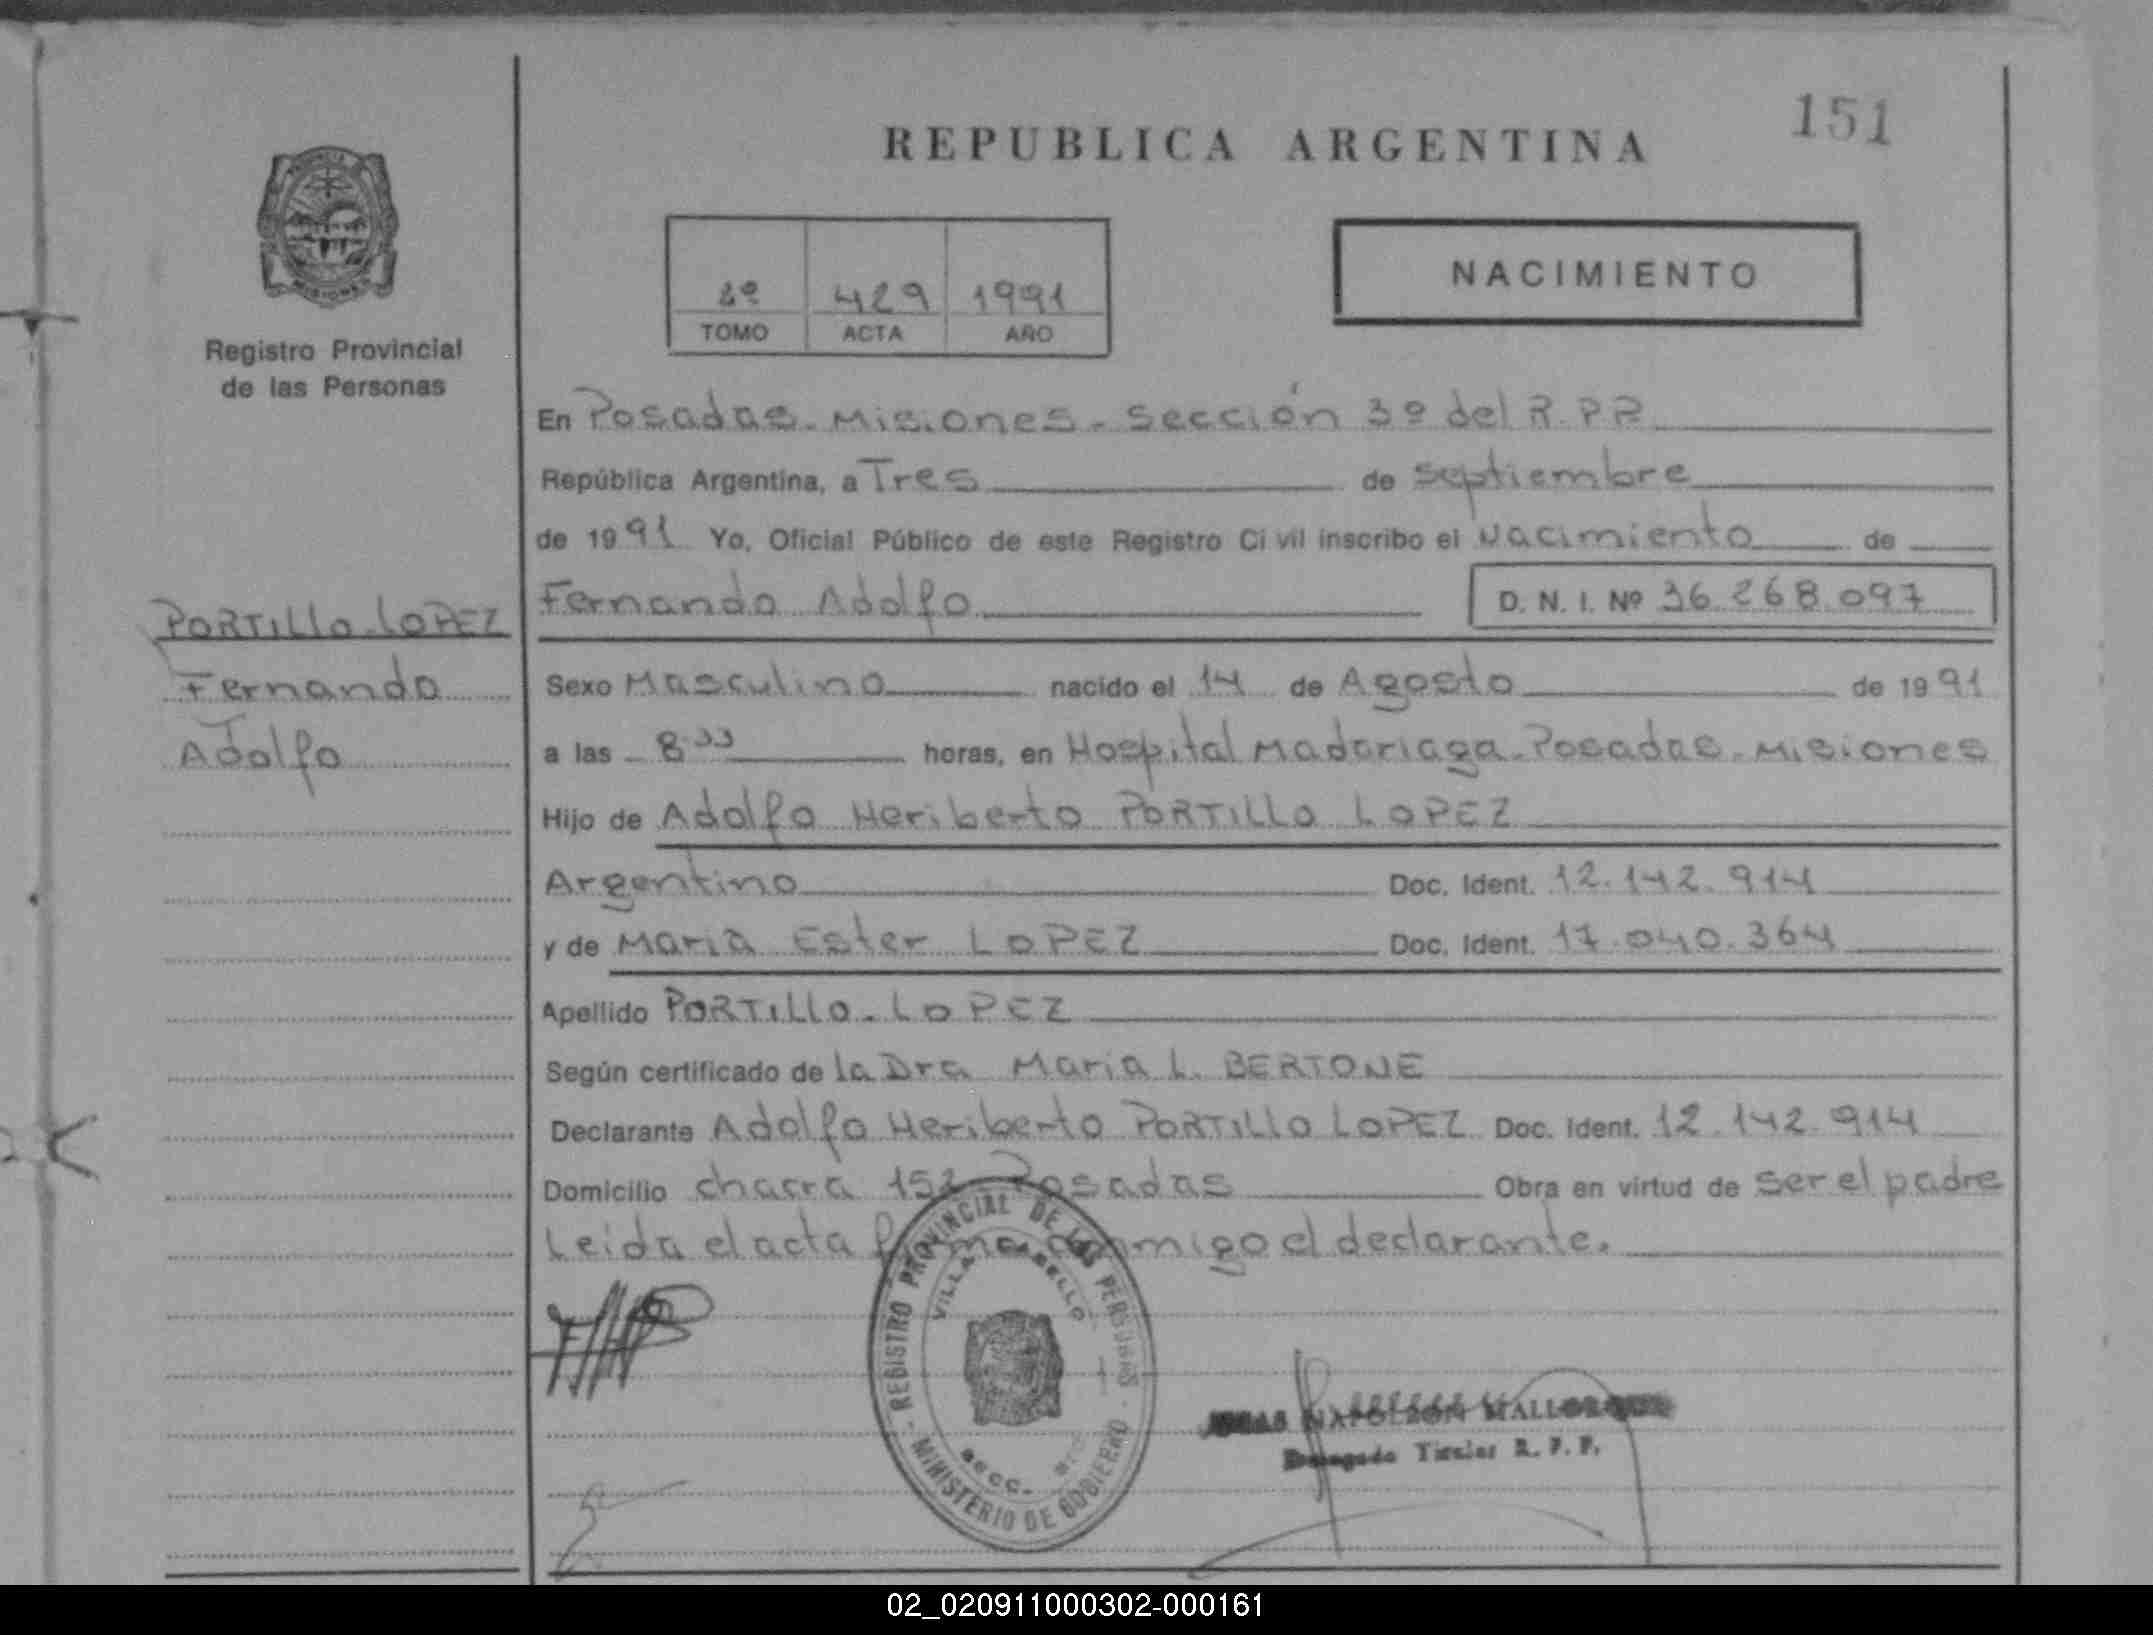 151
REPUBLICA ARGENTINA
NACIMIENTO
2º 429 1991
TOMO ACTA AÑO
Registro Provincial
de las Personas
PORTILLO LOPEZ
Fernando
Adolfo
En Posadas - Misiones - Sección 3º del R.P.P.
República Argentina, a Tres de septiembre
de 1991 Yo, Oficial Público de este Registro Civil inscribo el Nacimiento de
Fernando Adolfo D. N. I. Nº 36.268.097
Sexo Masculino nacido el 14 de Agosto de 1991
a las 8 33 horas, en Hospital Madariaga - Posadas - Misiones
Hijo de Adolfo Heriberto PORTILLO LOPEZ
Argentino Doc. Ident. 12.142.914
y de María Ester LOPEZ Doc. Ident. 17.040.364
Apellido PORTILLO - LOPEZ
Según certificado de la Dra María L. BERTONE
Declarante Adolfo Heriberto PORTILLO LOPEZ Doc. Ident. 12.142.914
Domicilio chacra 152 Posadas Obra en virtud de ser el padre
Leida el acta firma conmigo el declarante.
REGISTRO PROVINCIAL DE LAS PERSONAS
VILLA CABELLO
SECC.
MINISTERIO DE GOBIERNO
NAPOLEON
Delegado Titular R. P. P.
02_020911000302-000161